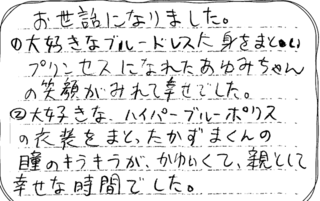 お世話になりました。
①大好きなブルードレスに身をまとい
プリンセスになれたあゆみちゃん
の笑顔がみれて幸せでした。
②大好きな、ハイパーブルーポリス
の衣装をまとったかずまくんの
瞳のキラキラが、かわいくて、親として
幸せな時間でした。